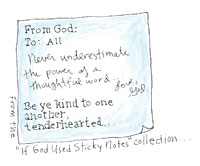 From God:
To: All
Never underestimate
the power of a
thoughtful word...
love,
God.
Be ye kind to one
another,
tenderhearted...
from the
"If God Used Sticky Notes" collection...